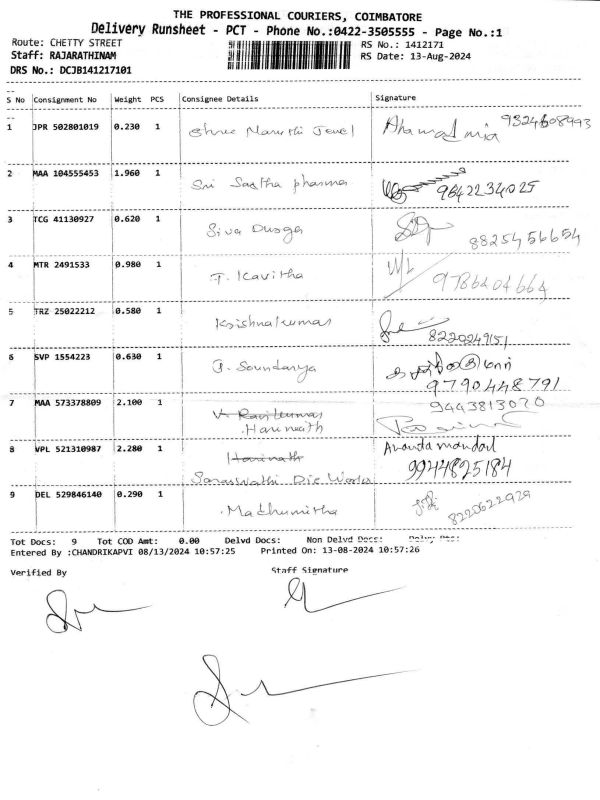 THE PROFESSIONAL COURIERS, COIMBATORE
Delivery Runsheet - PCT - Phone No.:0422-3505555 - Page No.:1
Route: CHETTY STREET
RS No.: 1412171
Staff: RAJARATHINAM
RS Date: 13-Aug-2024
DRS No.: DCJB141217101
S No Consignment No Weight PCS Consignee Details Signature
1 JPR 502801019 0.230 1 Shree Maruthi Jewel Ahamad mia 9324608993
2 MAA 104555453 1.960 1 Sri Sastha pharma 9842234025
3 TCG 41130927 0.620 1 Siva Durga 8825456654
4 MTR 2491533 0.980 1 T. Kavitha 9786404664
5 TRZ 25022212 0.580 1 Krishnakumar 8220249151
6 SVP 1554223 0.630 1 P. Soundarya 9790448791
7 MAA 573378809 2.100 1 V. Ravikumar 9443813020
Harinath
8 VPL 521310987 2.280 1 Harinath Ananda mandal
Saraswathi Die Works 9944825184
9 DEL 529846140 0.290 1 Madhumitha 8220622929
Tot Docs: 9 Tot COD Amt: 0.00 Delvd Docs: Non Delvd Docs:
Entered By :CHANDRIKAPVI 08/13/2024 10:57:25 Printed On: 13-08-2024 10:57:26
Verified By Staff Signature